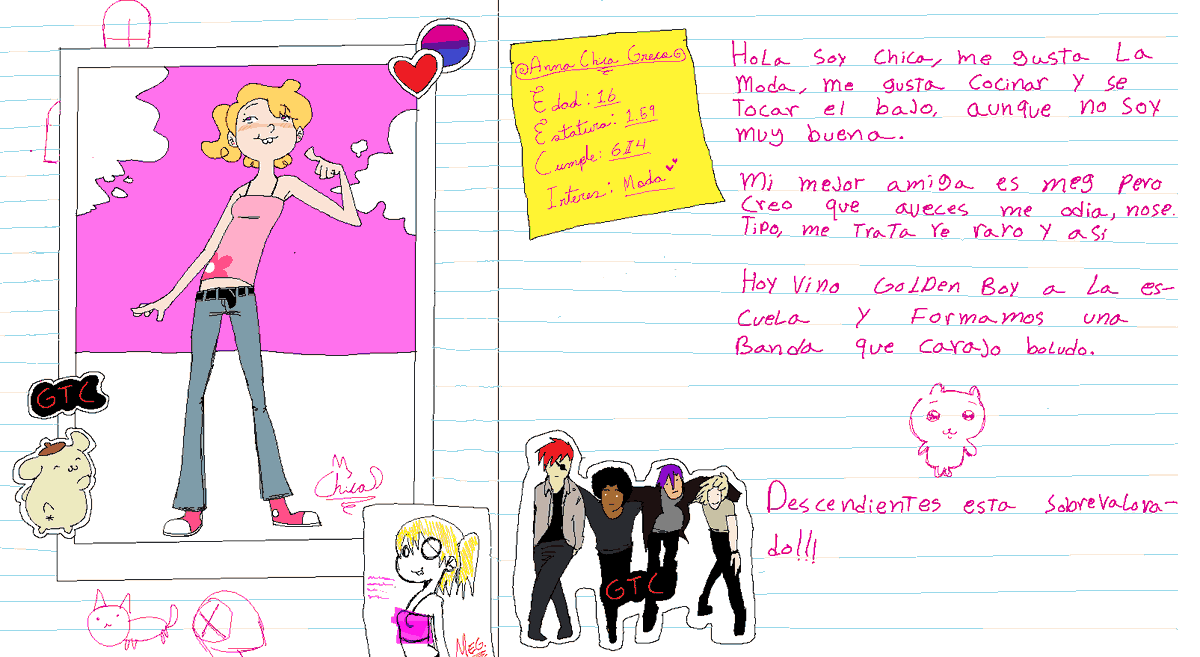 GTC
My
Chica
MEG.
@Anna Chia Greco@
Edad: 16
Estatura: 1.59
Cumple: 6
Interes: Moda
Hola soy Chica, me gusta La
Moda, me gusta cocinar Y se
Tocar el bajo, aunque no soy
muy buena.
Mi mejor amiga es meg pero
Creo que aveces me odia, nose.
Tipo, me Trata re raro Y asi
Hoy Vino GolDen Boy a La es-
cueLa Y Formamos una
Banda que carajo boludo.
GTC
Descendientes esta sobrevalora-
do!!!